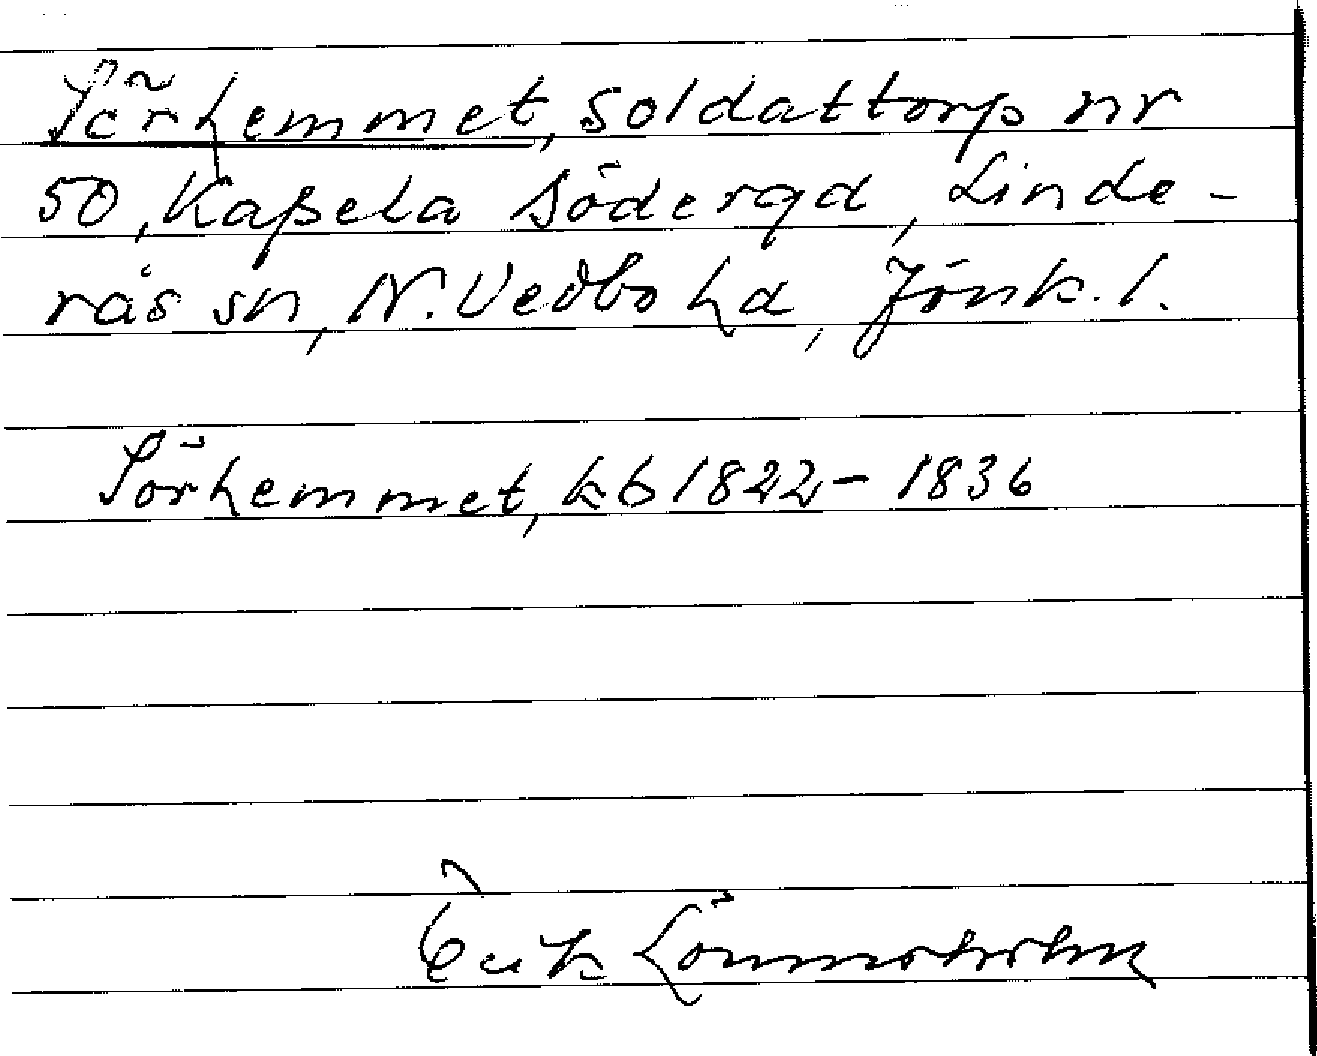 Sörhemmet, soldattorp nr
50, Kapela Södergd, Linde-
rås sn, N. Vedbo hd, Jönk. l.
Sörhemmet, kb 1822-1836
Erik Lönnerholm